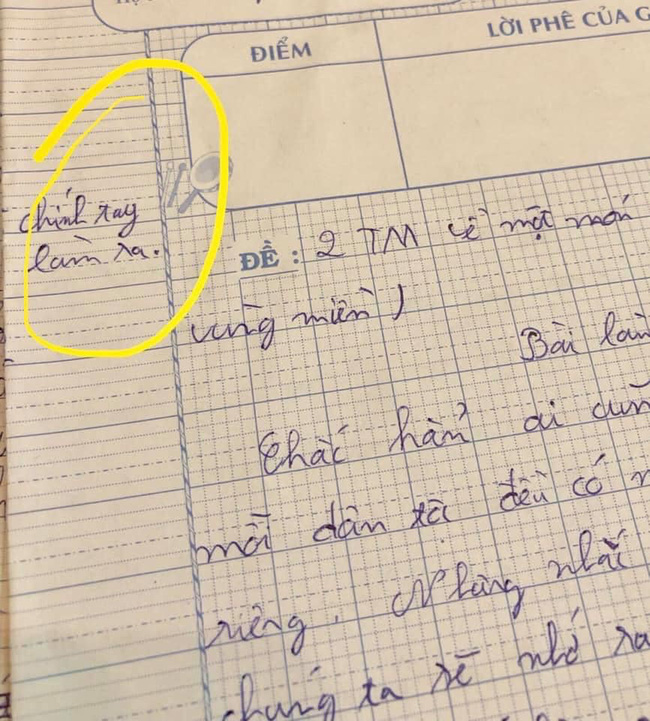 ĐIỂM
LỜI PHÊ CỦA G
chính tay
làm ra.
ĐỀ : 2 TM về một món
vùng miền)
Bài làm
Chắc hẳn ai cũn
mỗi dân tộc đều có
riêng. Nhưng nhắc
chúng ta sẽ nhớ ra